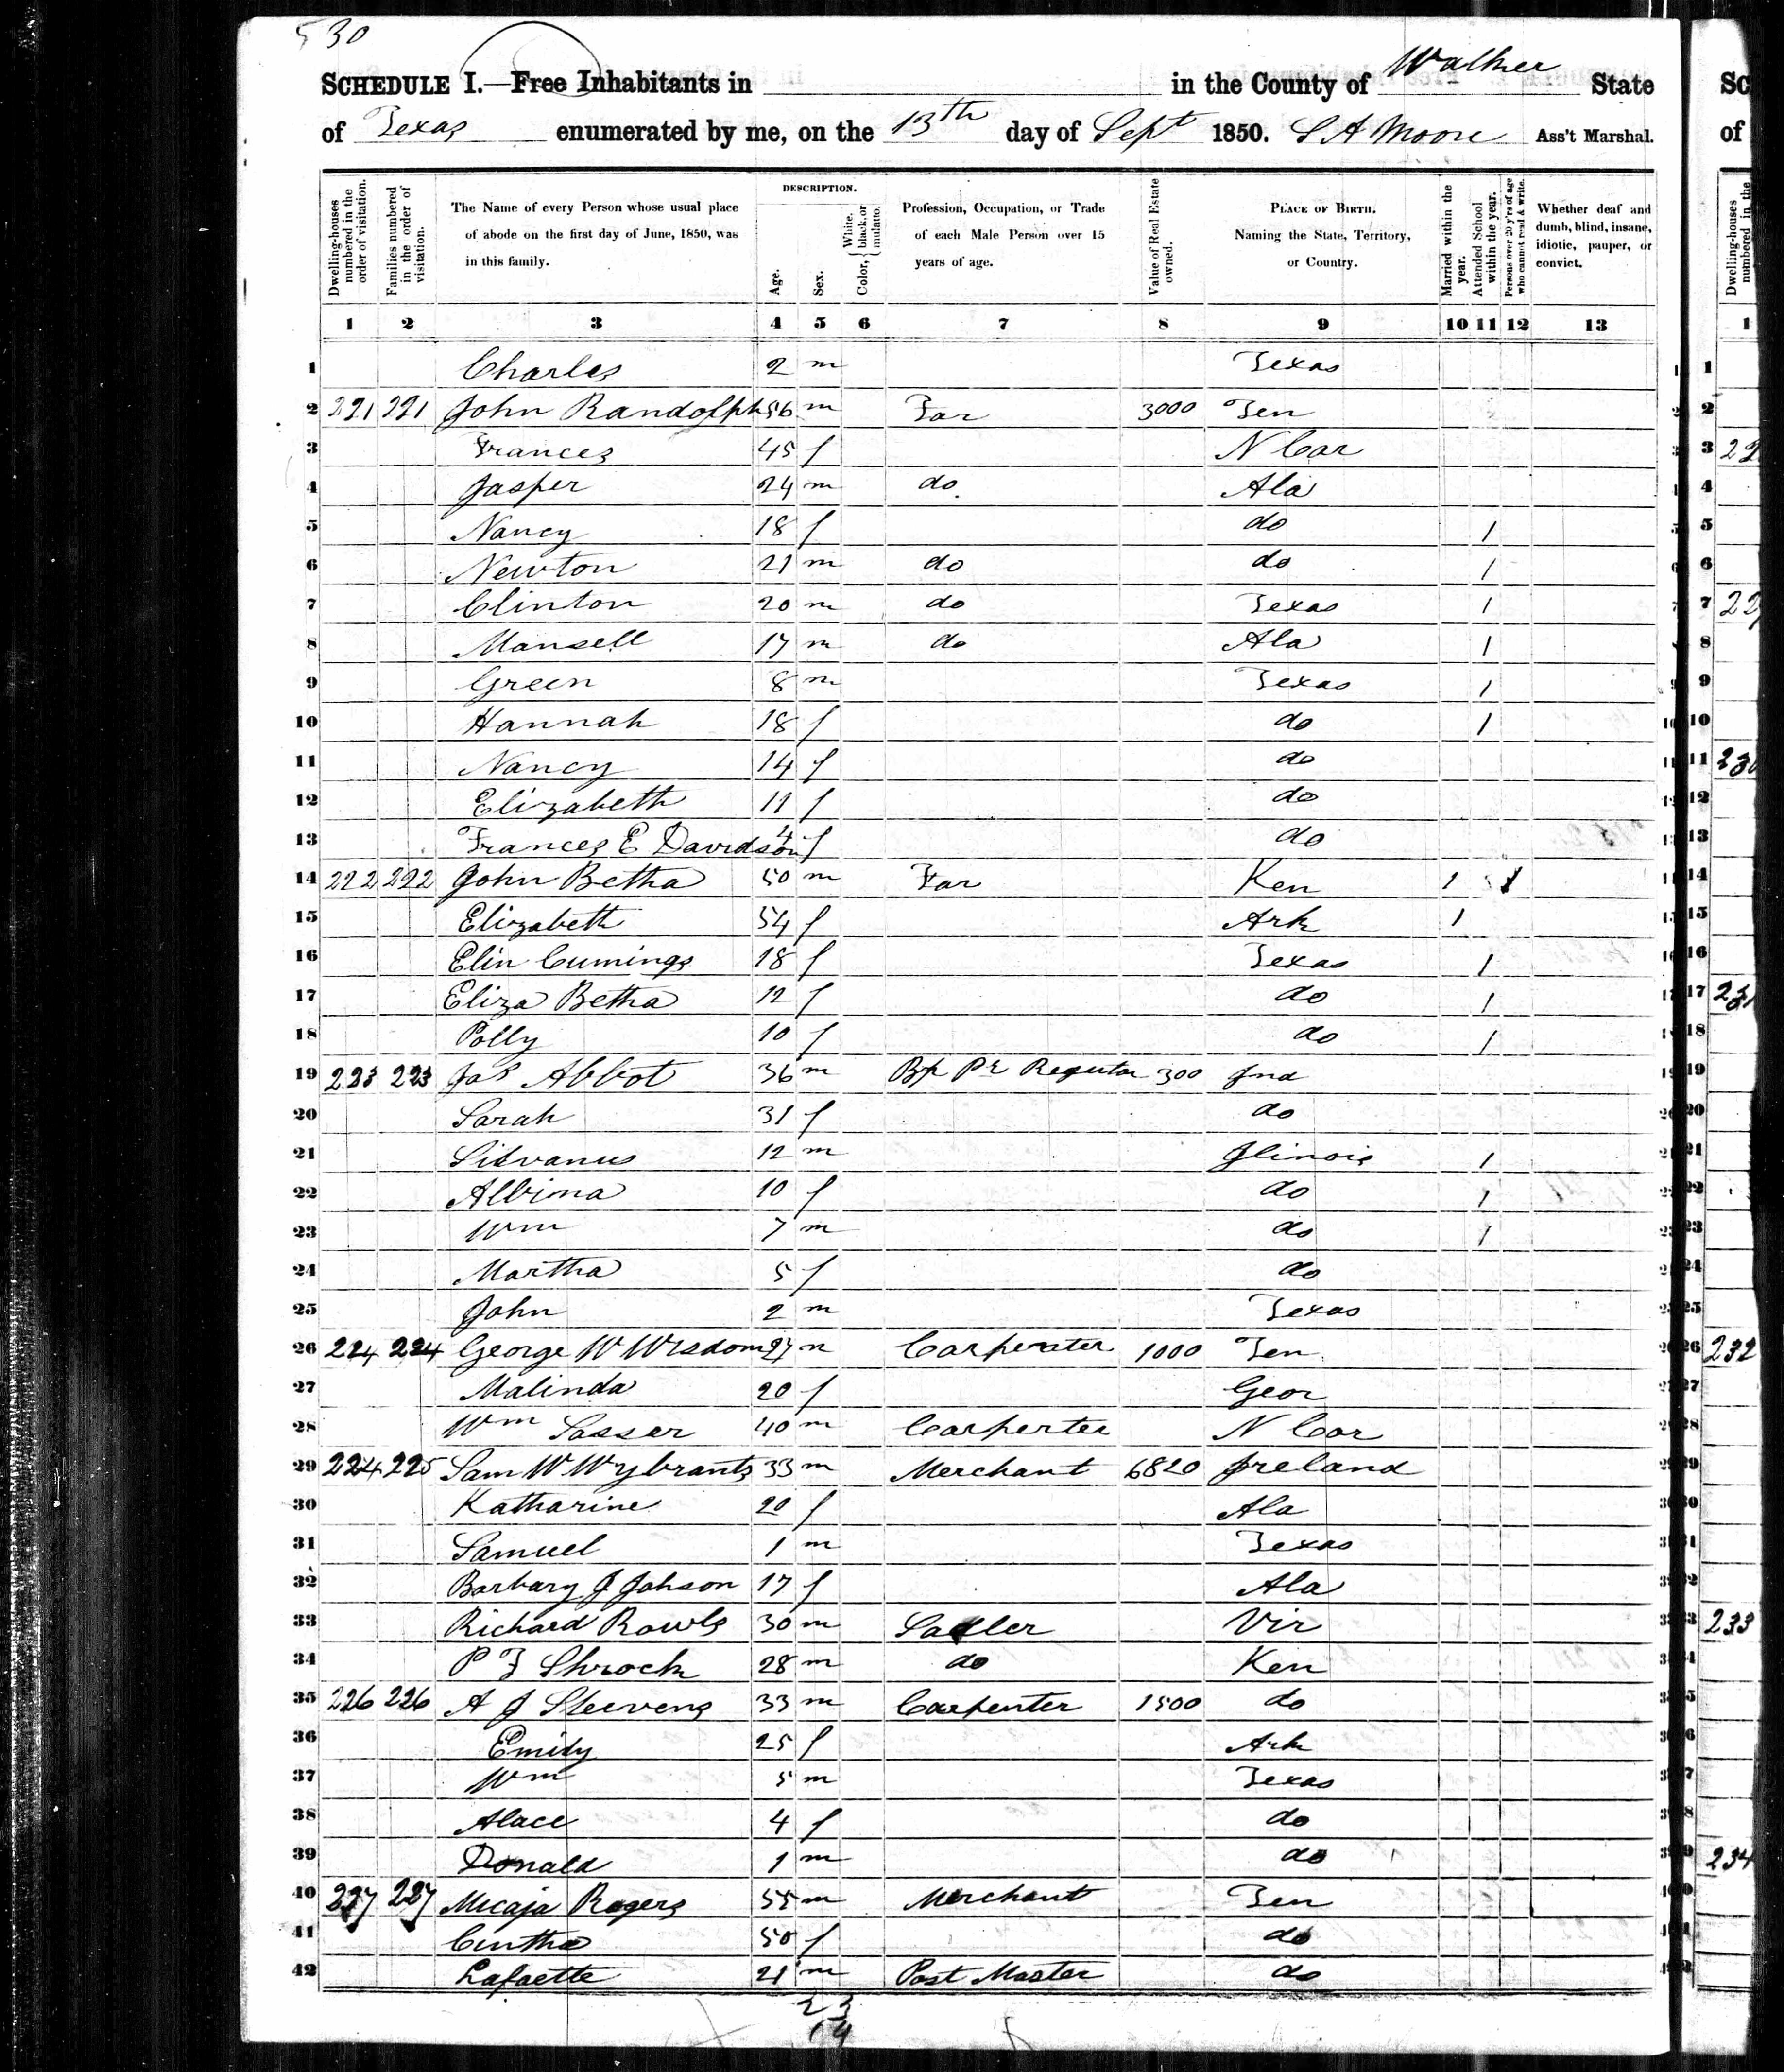 530
SCHEDULE I.—Free Inhabitants in in the County of Walker State
of Texas enumerated by me, on the 13th day of Sept 1850. S A Moore Ass't Marshal.
Dwelling-houses numbered in the order of visitation.
Families numbered in the order of visitation.
The Name of every Person whose usual place of abode on the first day of June, 1850, was in this family.
DESCRIPTION.
Age.
Sex.
Color, { White, black, or mulatto.
Profession, Occupation, or Trade of each Male Person over 15 years of age.
Value of Real Estate owned.
PLACE OF BIRTH. Naming the State, Territory, or Country.
Married within the year.
Attended School within the year.
Persons over 20 y'rs of age who cannot read & write.
Whether deaf and dumb, blind, insane, idiotic, pauper, or convict.
1 2 3 4 5 6 7 8 9 10 11 12 13
1 Charles 2 m Texas
2 221 221 John Randolph 56 m Far 3000 Ten
3 Frances 45 f N Car
4 Jasper 24 m do Ala
5 Nancy 18 f do 1
6 Newton 21 m do do 1
7 Clinton 20 m do Texas 1
8 Mansell 17 m do Ala 1
9 Green 8 m Texas 1
10 Hannah 18 f do 1
11 Nancy 14 f do
12 Elizabeth 11 f do
13 Frances E Davidson 4 f do
14 222 222 John Betha 50 m Far Ken 1 1
15 Elizabeth 54 f Ark 1
16 Elin Cumings 18 f Texas 1
17 Eliza Betha 12 f do 1
18 Polly 10 f do 1
19 223 223 Jas Abbot 36 m 300 Ind
20 Sarah 31 f do
21 Silvanus 12 m Ilinois 1
22 Albina 10 f do 1
23 Wm 7 m do 1
24 Martha 5 f do
25 John 2 m Texas
26 224 224 George W Wisdom 27 m Carpenter 1000 Ten
27 Malinda 20 f Geor
28 Wm Sasser 40 m Carpenter N Car
29 224 225 Sam W Wybrants 33 m Merchant 6820 Ireland
30 Katharine 20 f Ala
31 Samuel 1 m Texas
32 Barbary J Johson 17 f Ala
33 Richard Rowls 30 m Sadler Vir
34 P F Shrock 28 m do Ken
35 226 226 A J Steevens 33 m Carpenter 1500 do
36 Emily 25 f Ark
37 Wm 5 m Texas
38 Alace 4 f do
39 Donald 1 m do
40 227 227 Micaja Rogers 55 m Merchant Ten
41 Cintha 50 f do
42 Lafaette 21 m Post Master do
23
19